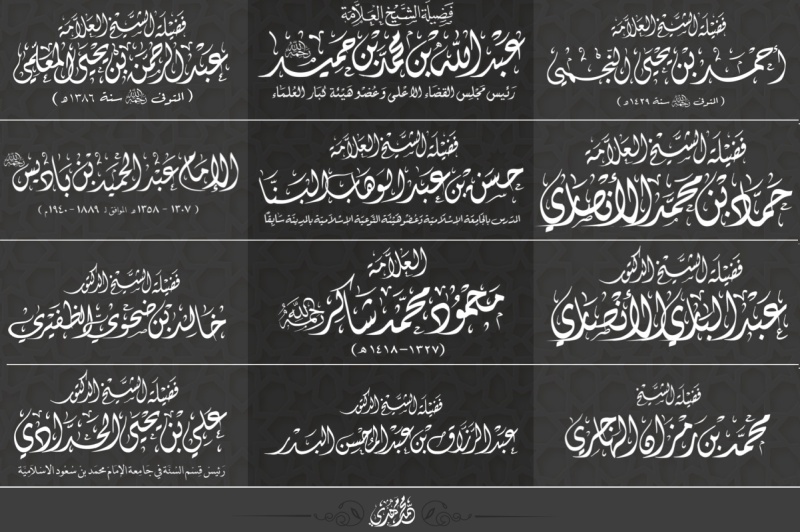 فضيلة الشيخ العلامة
أحمد بن يحيى النجمي
( المتوفى رحمه الله سنة ١٤٢٩هـ )
فضيلة الشيخ العلامة
عبد الله بن محمد بن حميد رحمه الله
رئيس مجلس القضاء الأعلى وعضو هيئة كبار العلماء
فضيلة الشيخ العلامة
عبد الرحمن بن يحيى المعلمي
( المتوفى رحمه الله سنة ١٣٨٦هـ )
فضيلة الشيخ العلامة
حماد بن محمد الأنصاري
فضيلة الشيخ العلامة
حسن بن عبد الوهاب البنا
المدرس بالجامعة الإسلامية وعضو هيئة التوعية الإسلامية بالمدينة سابقا
الإمام عبد الحميد بن باديس رحمه الله
( ١٣٠٧ - ١٣٥٨هـ الموافق لـ ١٨٨٩ - ١٩٤٠م )
فضيلة الشيخ الدكتور
عبد الباري الأنصاري
العلامة
محمود محمد شاكر رحمه الله
(١٣٢٧-١٤١٨هـ)
فضيلة الشيخ الدكتور
خالد بن ضحوي الظفيري
فضيلة الشيخ
محمد بن رمزان الهاجري
فضيلة الشيخ الدكتور
عبد الرزاق بن عبد المحسن البدر
فضيلة الشيخ الدكتور
علي بن يحيى الحدادي
رئيس قسم السنة في جامعة الإمام محمد بن سعود الإسلامية